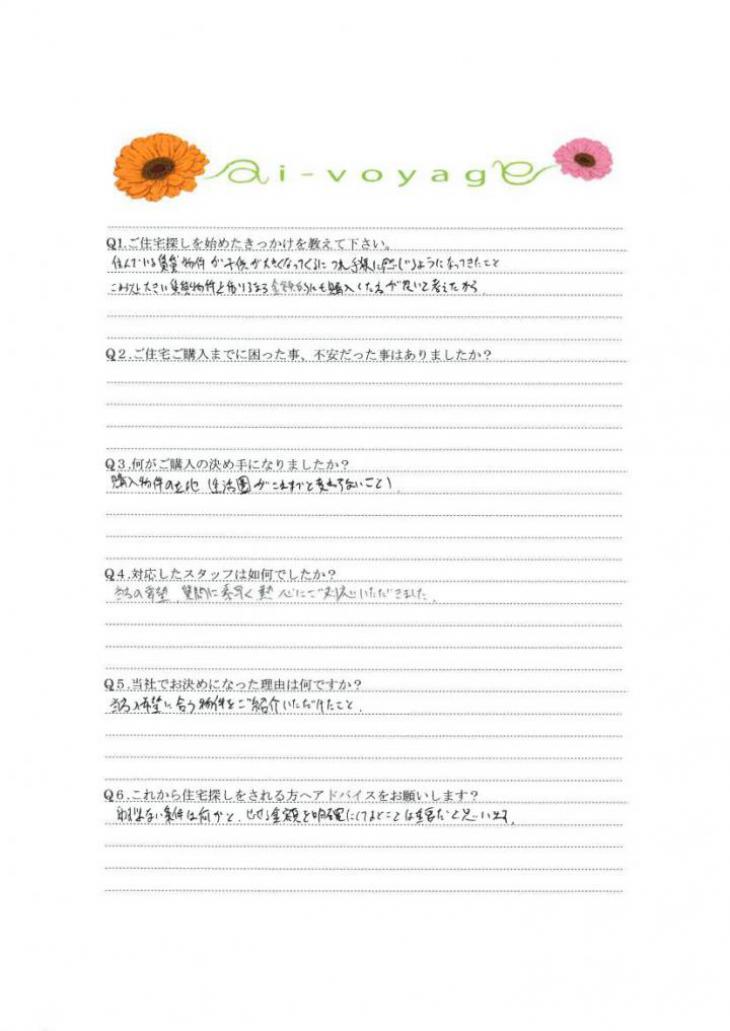 ai-voyage
Q1.ご住宅探しを始めたきっかけを教えて下さい。
住んでいる賃貸物件が子供が大きくなってくるにつれ手狭に感じるようになってきたこと
大きい賃貸物件を借りるなら金銭的にも購入した方が良いと考えたから
Q2.ご住宅ご購入までに困った事、不安だった事はありましたか？
Q3.何がご購入の決め手になりましたか？
購入物件の土地(生活圏がこれまでと変わらないこと)
Q4.対応したスタッフは如何でしたか？
希望、質問に素早く熱心にご対応いただきました。
Q5.当社でお決めになった理由は何ですか？
希望に合う物件をご紹介いただけたこと。
Q6.これから住宅探しをされる方へアドバイスをお願いします？
ない条件は何かと、金額を明確にしておくことは重要だと思います。